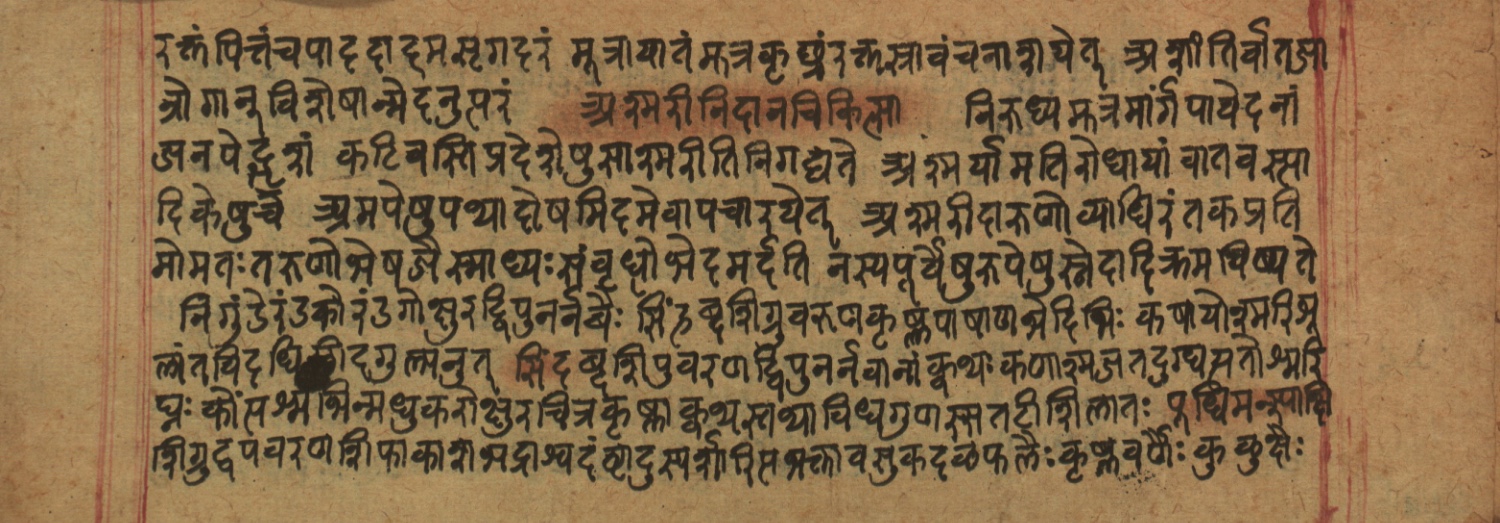 रक्तंपित्तंचपाददादमसृगदरं मूत्राघातंमूत्रकृछ्रंरक्तस्रावंचनाशयेत् अशीतिर्वातजा
न्रोगान्विशेषान्मेदनुत्परं अश्मरीनिदानचिकित्सा निरुध्यमूत्रमार्गंपावेदनां
जनयेद्दृशं कटिबस्तिप्रदेशेषुसाश्मरीतिनिगद्यते अश्मर्यामतिरोधायांवातवस्त्या
दिकेषुच अमपेषुपथ्यादोषमिदमेवापचारयेत् अश्मरीदारुणोव्याधिरंतकप्रति
मोमतःतरुणोभेषजैस्साध्यःसंवृधोभेदमर्दति नस्यपूर्वेषुरुपेषुस्नेदादिक्रमयिष्यते
निर्गुंडेरंडकोरंडगोक्षुरद्विपुनर्नवैः सिंहवृशिग्रुवरुणकृष्णपाषाणभेदिभिः कषायोनुमरिशू
लंतविदधि द्गुल्मनुत् सिंदवृशिपुवरणद्विपुनर्नवानांक्वथःकणाश्मजतदुग्घसतोश्मरि
घ्नः कौंसश्मभिन्मधुकरोक्षुरचित्रकृष्णाक्वथस्तथाविधगुणस्सतटीशिलातः
शिग्रुद्वपवरणशिफाकाशभद्राश्वदंष्ट्रादुस्पर्शारिसभल्लावसुकदळफलैःकृष्णवर्णैःकुळुक्षैः